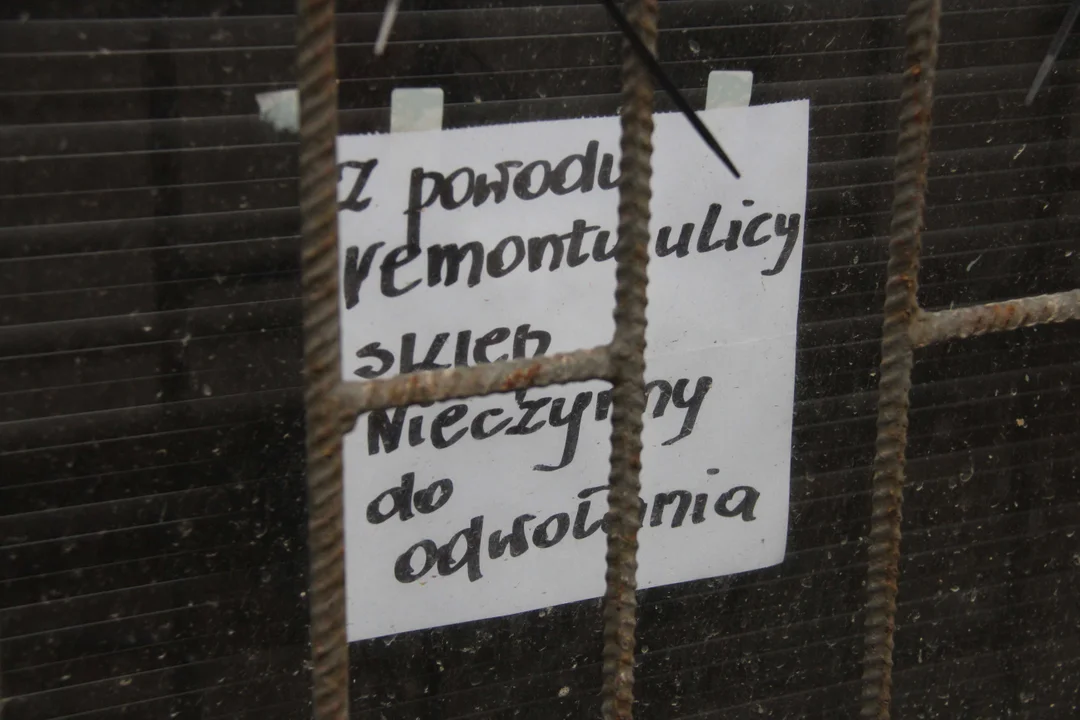 Z powodu
remontu ulicy
sklep
Nieczynny
do
odwołania